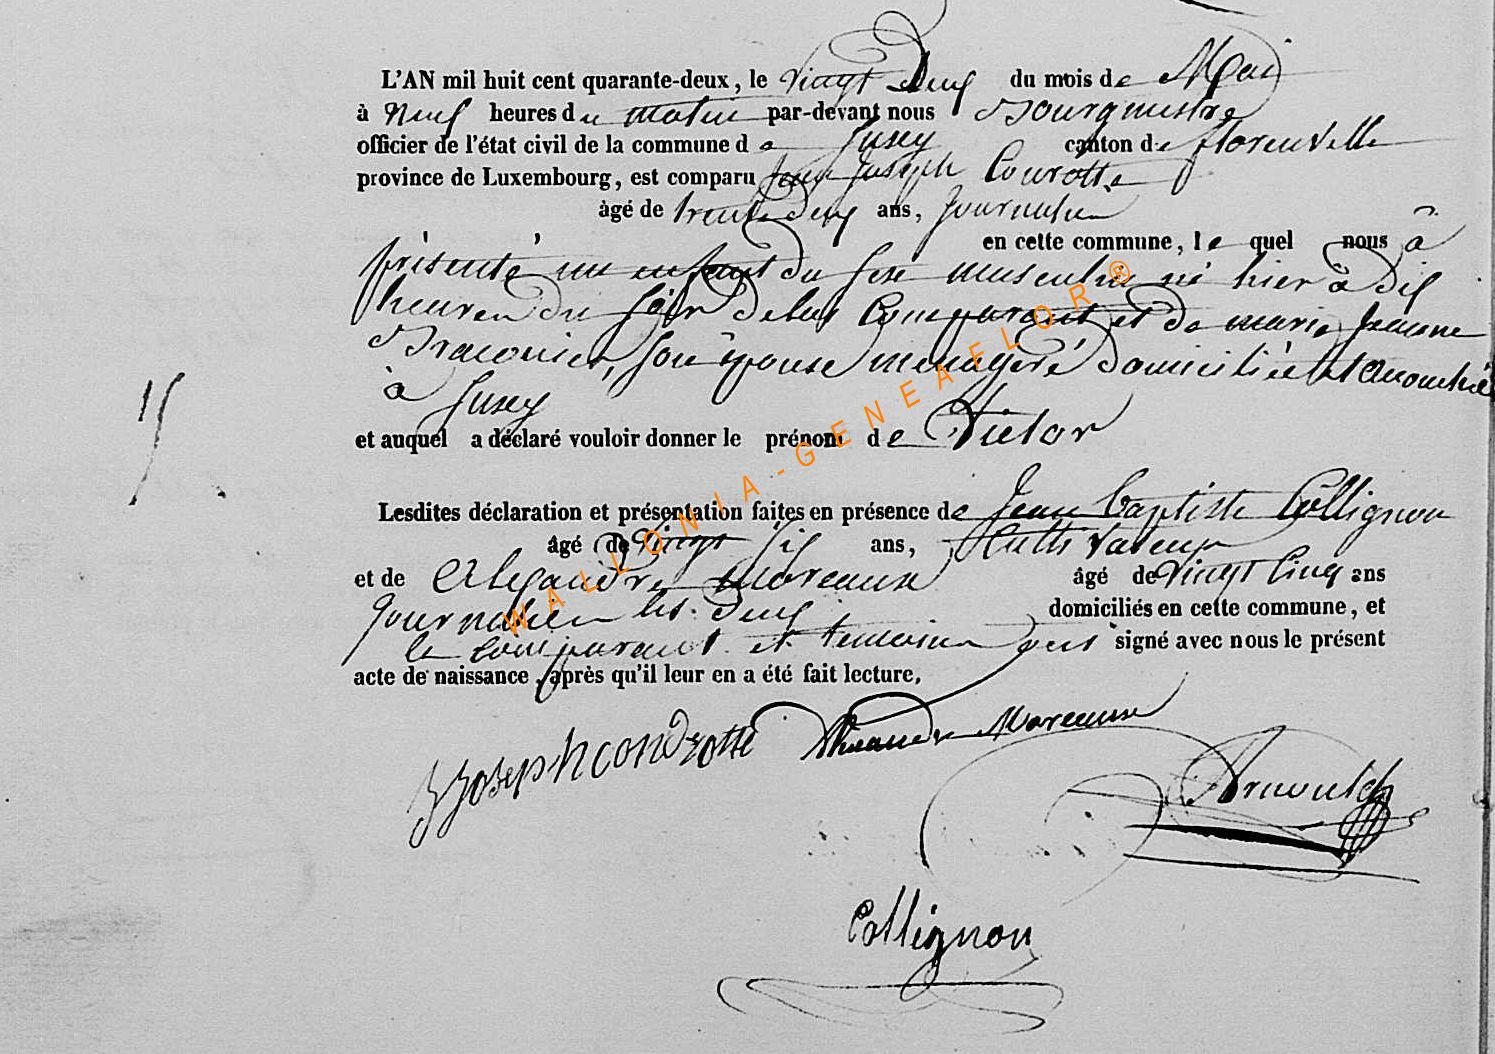 L'AN mil huit cent quarante-deux, le vingt deux du mois de Mai
à neuf heures du matin par-devant nous Bourgmestre
officier de l'état civil de la commune de Jusey canton de florenville
province de Luxembourg, est comparu Jean Joseph Courotte
âgé de trente deux ans, journalier
en cette commune, lequel nous à
présenté un enfant du sexe masculin né hier à dix
heures du soir de lui Comparant et de marie jeanne
Braconier, son épouse ménagère domiciliée et accouchée
à Jusey
et auquel a déclaré vouloir donner le prénom de Victor
Lesdites déclaration et présentation faites en présence de Jean Baptiste Collignon
âgé de vingt six ans, Cultivateur
et de Alexandre Moreaux âgé de vingt cinq ans
journalier les deux domiciliés en cette commune, et
le comparant et temoins ont signé avec nous le présent
acte de naissance, après qu'il leur en a été fait lecture.
J Joseph condrotte Alexandre Moreaux
Arnould
Collignon
WALLONIA-GENEAFLOR®